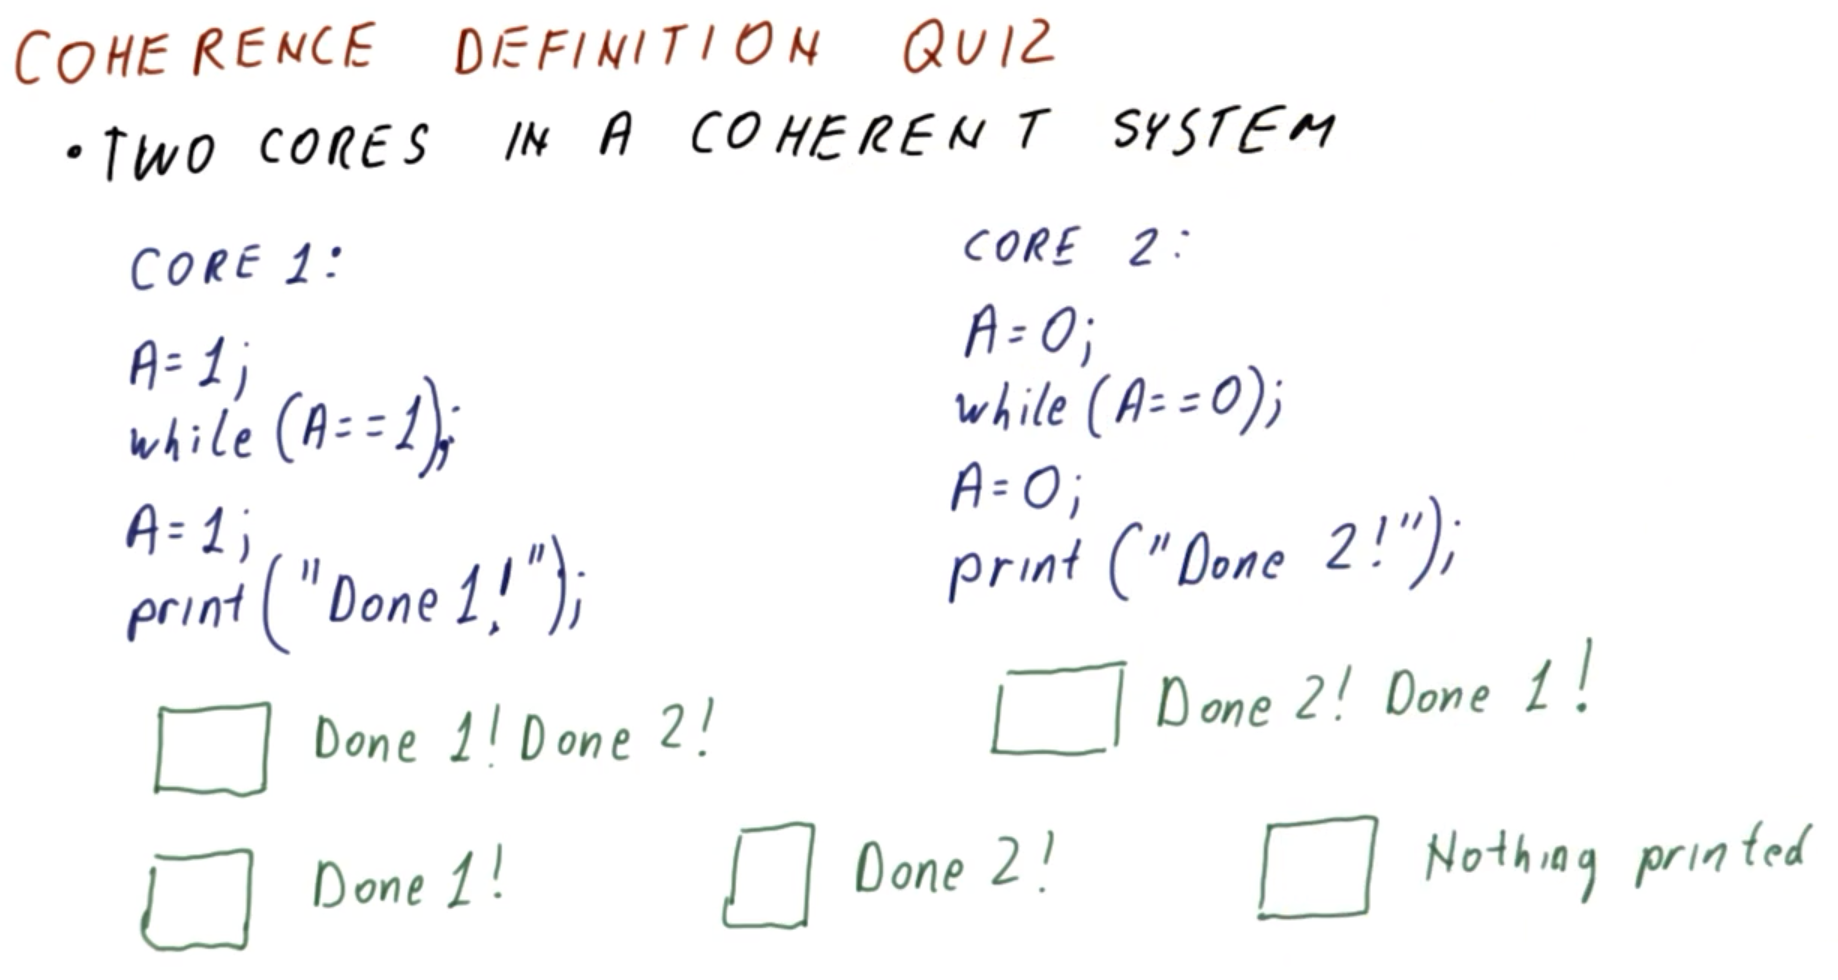 COHERENCE DEFINITION QUIZ
• TWO CORES IN A COHERENT SYSTEM
CORE 1:
A=1;
while (A==1);
A=1;
print("Done 1!");
CORE 2:
A=0;
while (A==0);
A=0;
print ("Done 2!");
Done 1! Done 2!
Done 2! Done 1!
Done 1!
Done 2!
Nothing printed